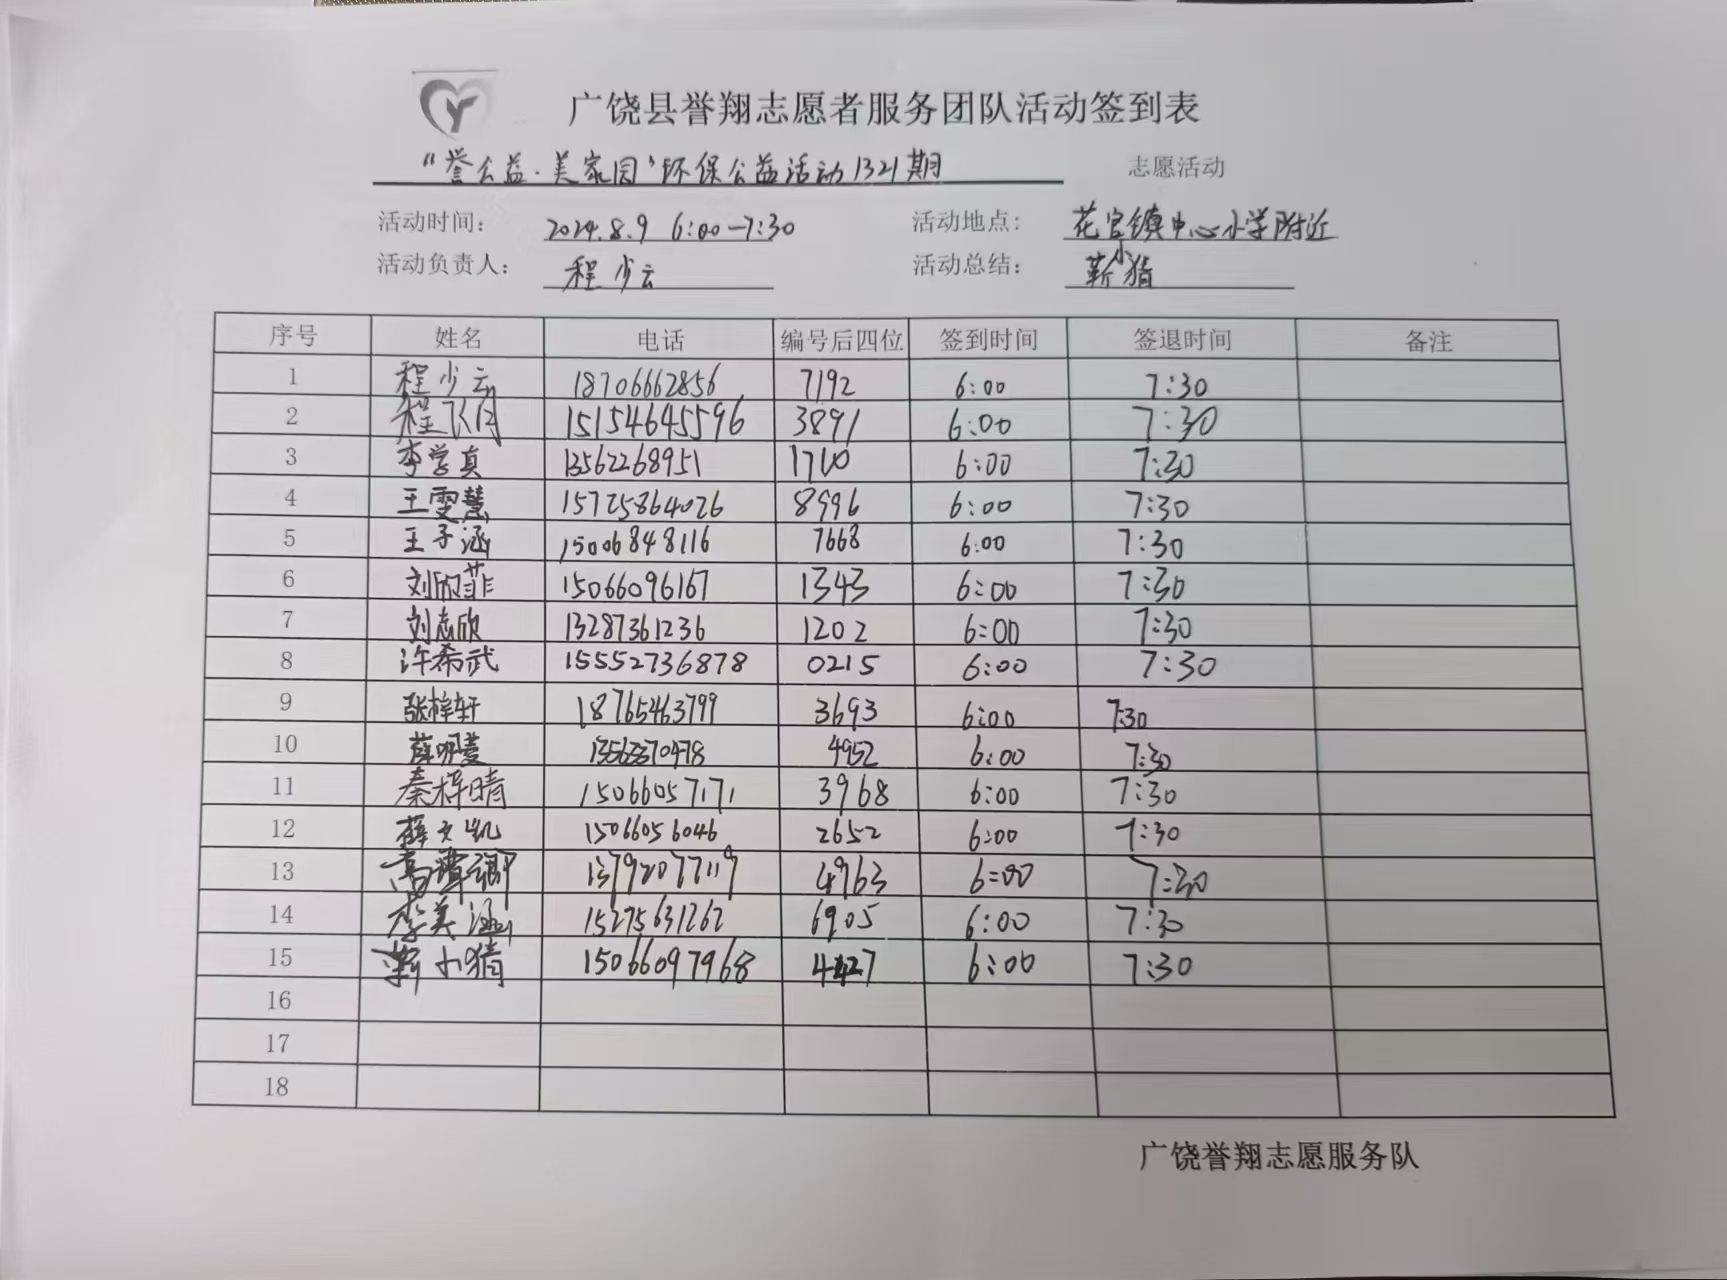 广饶县誉翔志愿者服务团队活动签到表
“誉公益·美家园”环保公益活动1321期 志愿活动
活动时间： 2024.8.9 6:00-7:30 活动地点： 花官镇中心小学附近
活动负责人： 程少云 活动总结： 靳小猜
序号 姓名 电话 编号后四位 签到时间 签退时间 备注
1 程少云 18706662856 7192 6:00 7:30
2 程 15154645596 3891 6:00 7:30
3 李学真 13562268951 1710 6:00 7:30
4 王雯慧 15725864026 8996 6:00 7:30
5 王子涵 15006848116 7668 6:00 7:30
6 刘欣菲 15066096167 1343 6:00 7:30
7 刘志欣 13287361236 1202 6:00 7:30
8 许希武 15552736878 0215 6:00 7:30
9 张梓轩 18765463799 3693 6:00 7:30
10 薛明 4952 6:00 7:30
11 秦梓晴 15066057171 3968 6:00 7:30
12 薛文凯 15066056046 2652 6:00 7:30
13 高 13792077119 4963 6:00 7:30
14 李美涵 15275631262 6905 6:00 7:30
15 靳小猜 15066097968 4427 6:00 7:30
16
17
18
广饶誉翔志愿服务队